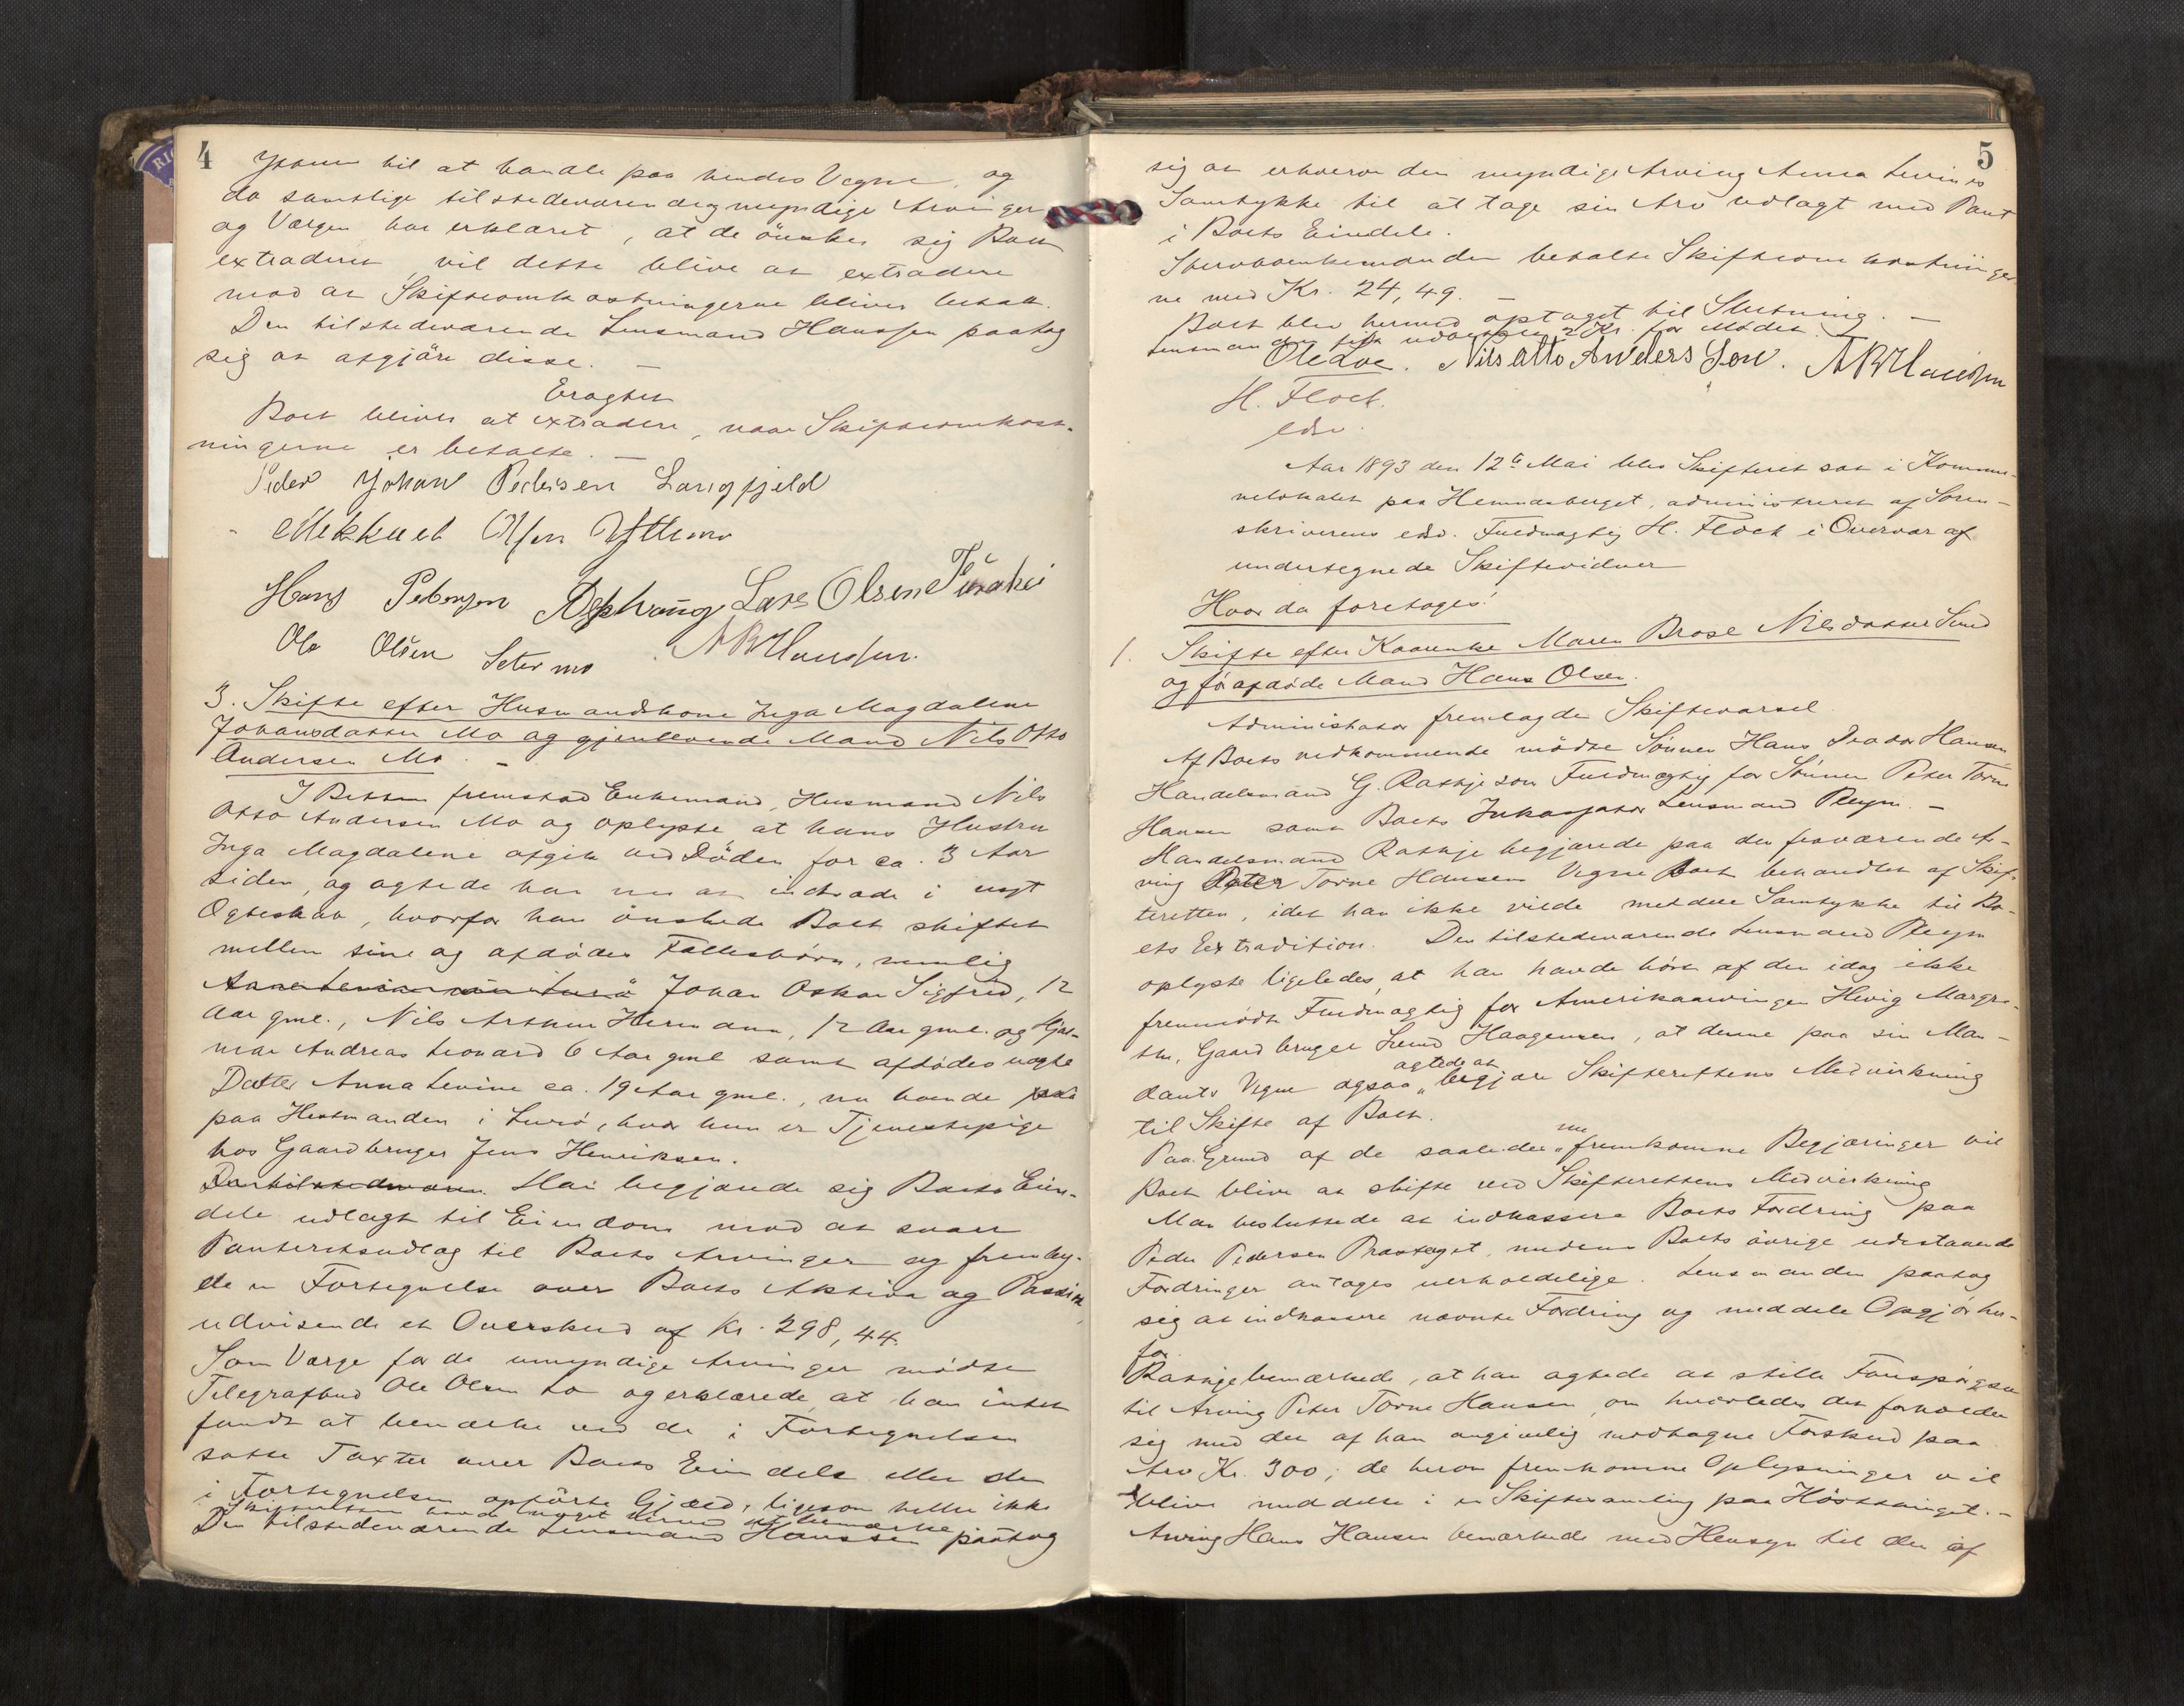 4
Yttermo til at handle paa hendes Vegne, og
da samtlige tilstedeværende myndige Arvinger
og Værgen har erklæret, at de önsker sig Boet
extraderet, vil dette blive at extradere
mod at Skifteomkostningerne bliver betalt.
Den tilstedeværende Lensmand Hanssen paatog
sig at afgjöre disse. —
Eragtet
Boet bliver at extradere, naar Skifteomkost-
ningerne er betalte. —
Peder Johan Pedersen Langfjeld
Mekkael Olsen Yttermo
Hans Petersen Lars Olsen
Ole Olsen Setermo A B Hanssen.
3. Skifte efter Husmandskone Inga Magdalene
Johansdatter Mo og gjenlevende Mand Nils Otto
Andersen Mo. —
I Retten fremstod Enkemand, Husmand Nils
Otto Andersen Mo og oplyste at hans Hustru
Inga Magdalene afgik ved Döden for ca. 3 Aar
siden, og agtede han nu at indtræde i nyt
Ægteskab, hvorfor han önskede Boet skiftet
mellem sine og afdödes Fællesbörn, nemlig
Johan Oskar Sigfred, 12
Aar gml., Nils Arthur Hermann, 12 Aar gml. og Hjal-
mar Andreas Leonard 6 Aar gml samt afdödes uægte
Datter Anna Levine ca. 19 Aar gml., nu boende
paa Hestmanden i Lurö, hvor hun er Tjenestepige
hos Gaardbruger Jens Henriksen.
Den tilstedeværen Han begjærede sig Boets Eien-
dele udlagt til Eiendom mod at svare
Panteretsudlæg til Boets Arvinger og fremlag-
de en Fortegnelse over Boets Aktiva og Passiva,
udvisende et Overskud af Kr. 298,44.
Som Værge for de umyndige Arvinger mödte
Telegrafbud Ole Olsen Lo og erklærede, at han intet
fandt at bemærke ved de i Fortegnelsen
satte Taxter over Boets Eiendele eller den
i Fortegnelsen opförte Gjæld, ligesom heller ikke
Skifteretten havde noget herved at bemærke
Den tilstedeværende Lensmand Hanssen paatog
5
sig at erhverve den myndige Arving Anna Levines
Samtykke til at tage sin Arv udlagt med Pant
i Boets Eiendele.
Stervboenkemanden betalte Skifteomkostninger
ne med Kr. 24,49. —
Boet blev hermed optaget til Slutning. —
Lensmanden fik udbetalt 2 Kr. for Mödet.
Ole Loe. Nils Otto Anders Sen. A B Hanssen
H. Flock.
edsv.
Aar 1893 den 12te Mai blev Skifteret sat i Kommu-
nelokalet paa Hemnesberget, administreret af Soren-
skriverens edsv. Fuldmægtig H. Flock i Overvær af
undertegnede Skiftevidner
Hvor da foretoges:
1. Skifte efter Kaarenke Maren Brose Nilsdatter Sund
og föraf­döde Mand Hans Olsen.
Administrator fremlagde Skiftevarsel.
Af Boets vedkommende mödte Sönnen Hans Hansen
Handelsmand G. Raskje som Fuldmægtig for Sönnen Peter Torne
Hansen samt Boets Inkassator Lensmand Pleym. —
Handelsmand Raskje begjærede paa den fraværende Ar-
ving Peter Torne Hansens Vegne Boet behandlet af Skif-
teretten, idet han ikke vilde meddele Samtykke til Bo-
ets Extradition. Den tilstedeværende Lensmand Pleym
oplyste ligeledes, at han havde hört af den idag ikke
fremmödte Fuldmægtig for Amerikaarvingen Hevig Margre-
the, Gaardbruger Haagensen, at denne paa sin Man-
dants Vegne ogsaa agtede at begjære Skifterettens Medvirkning
til Skifte af Boet.
Paa Grund af de saaledes nu fremkomne Begjæringer vil
Boet blive at skifte ved Skifterettens Medvirkning
Man besluttede at indkassere Boets Fordring paa
Peder Pedersen medens Boets övrige udestaaende
Fordringer antages uerholdelige. Lensmanden paatog
sig at indkassere nævnte Fordring og meddele Opgjör her-
for.
Raskje bemærkede, at han agtede at stille Forespörgsel
til Arving Peter Torne Hansen, om hvorledes det forholder
sig med det af han angivelig modtagne Forskud paa
Arv Kr. 300; de herom fremkomne Oplysninger vil
blive meddelte i en Skiftesamling paa Hösttinget. —
Arving Hans Hansen bemærkede med Hensyn til den af